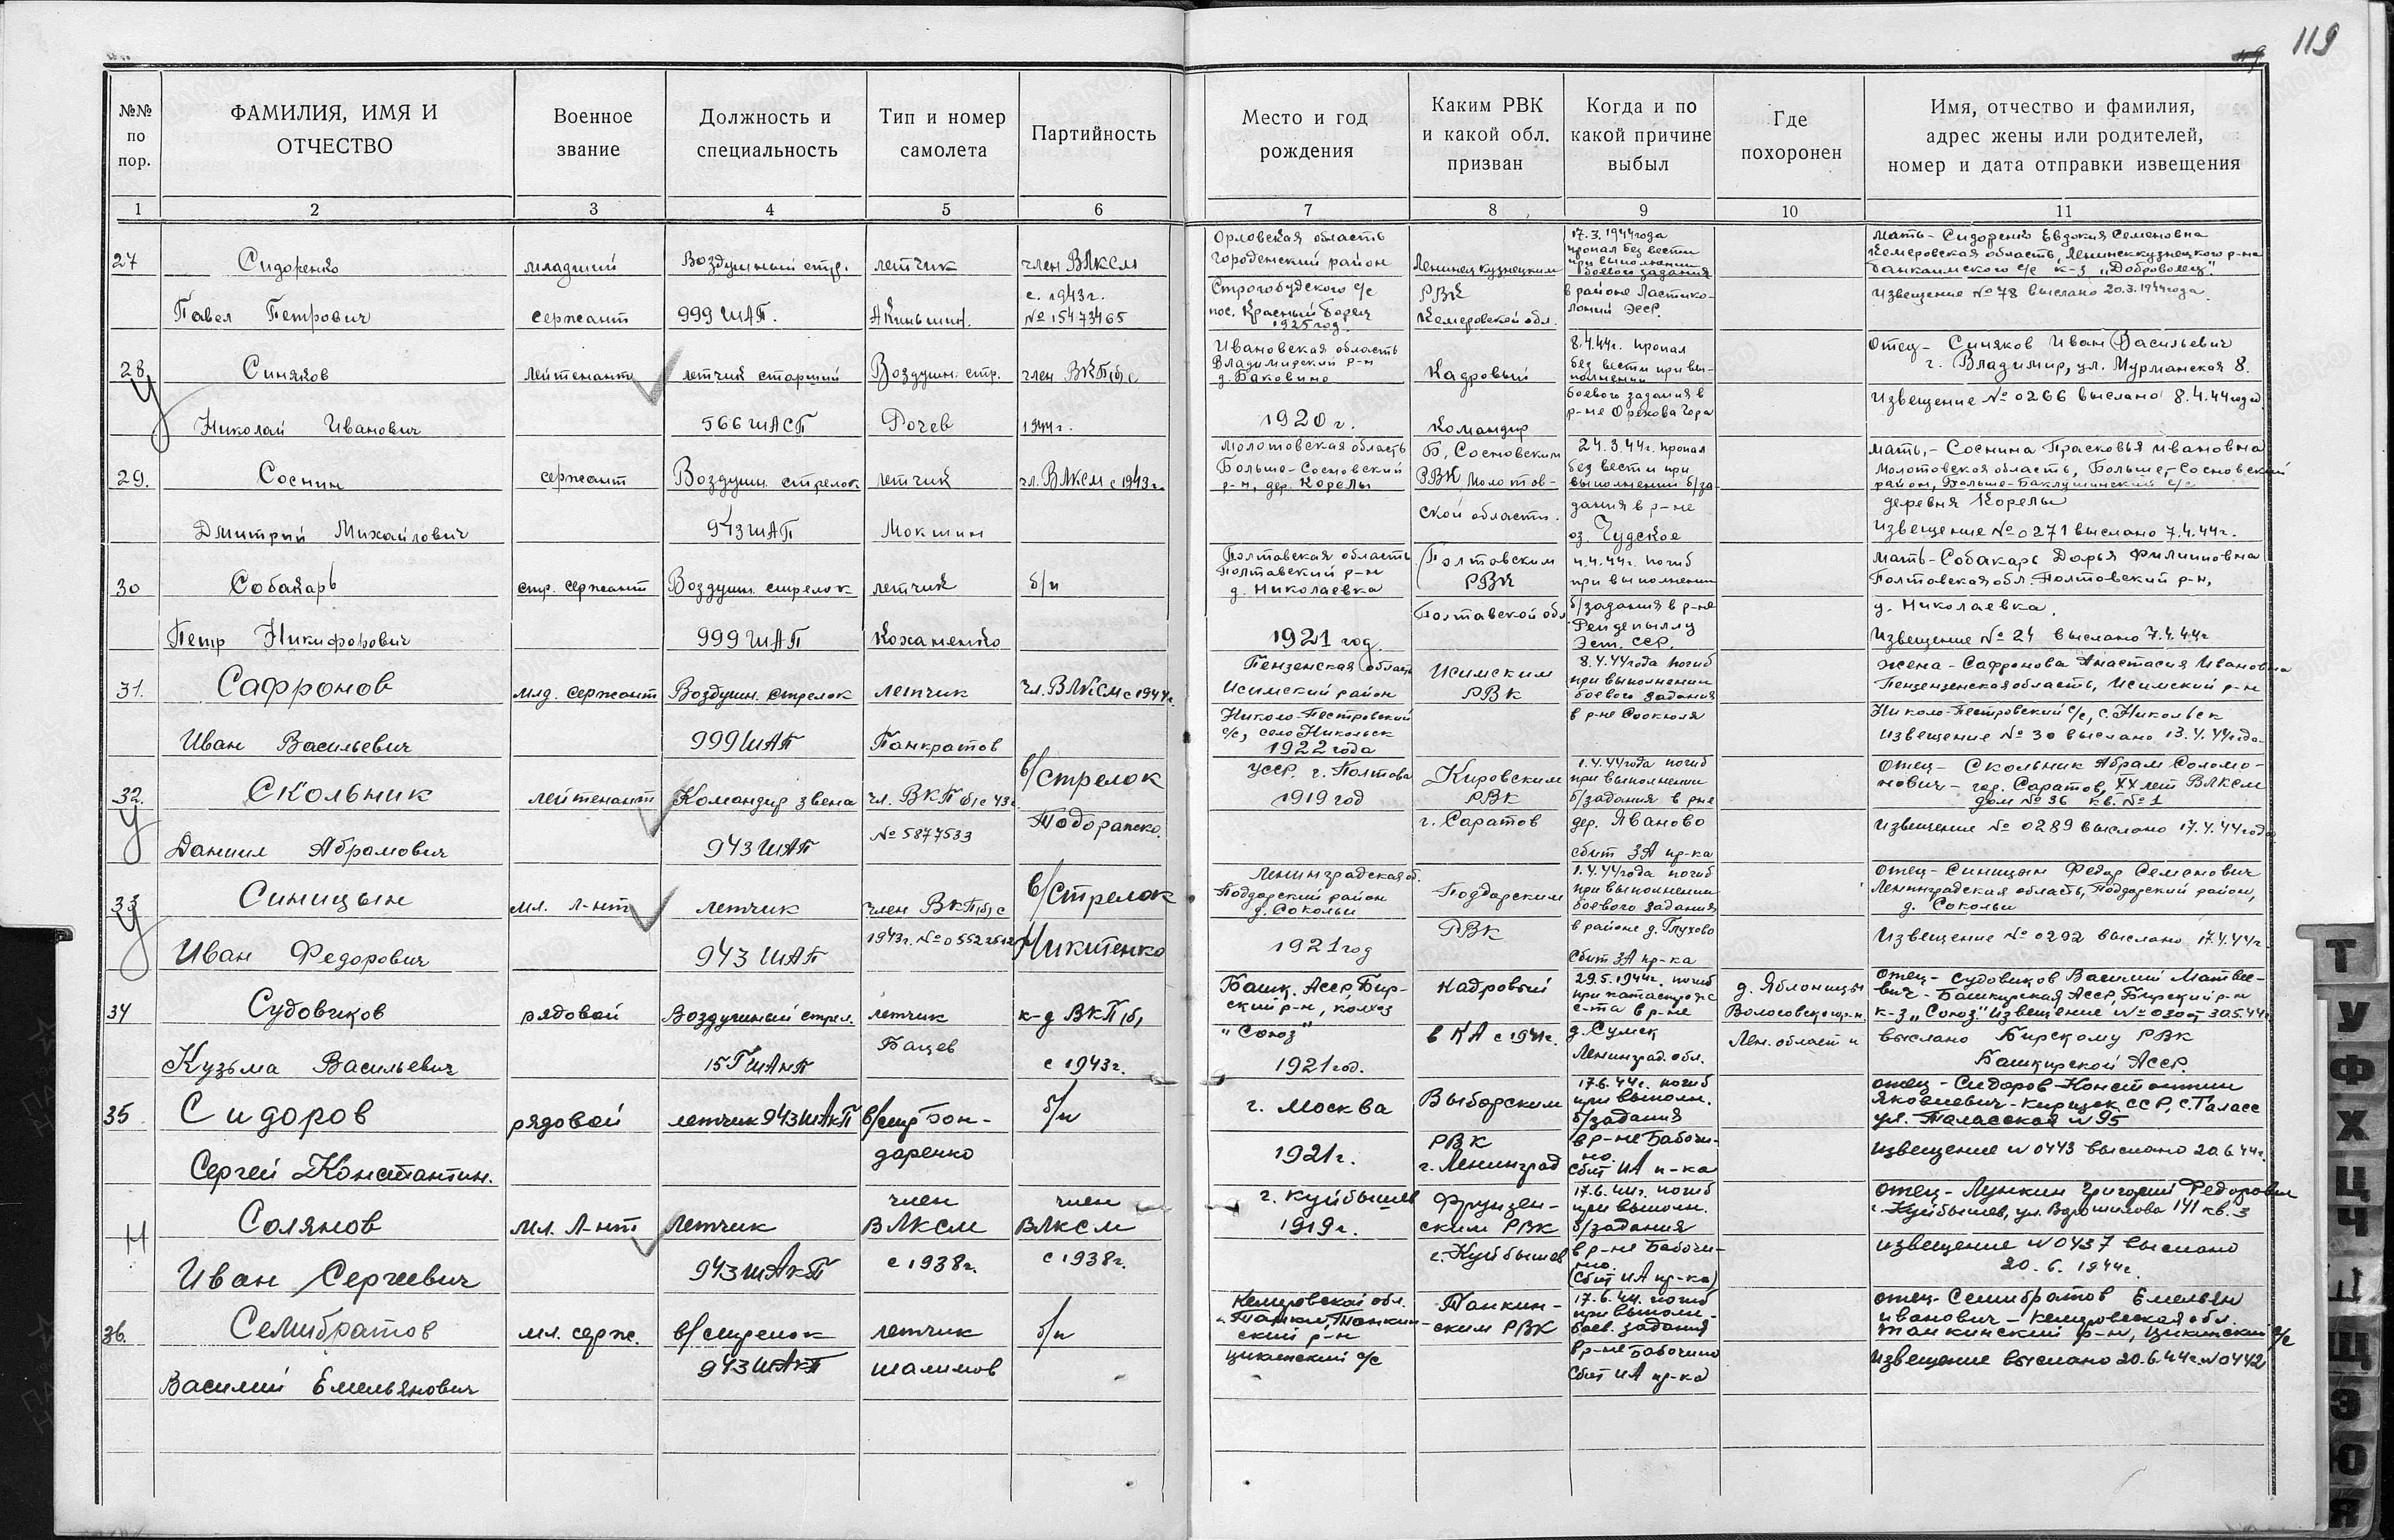 119
№№ по пор.
ФАМИЛИЯ, ИМЯ И ОТЧЕСТВО
Военное звание
Должность и специальность
Тип и номер самолета
Партийность
Место и год рождения
Каким РВК и какой обл. призван
Когда и по какой причине выбыл
Где похоронен
Имя, отчество и фамилия, адрес жены или родителей, номер и дата отправки извещения
1 2 3 4 5 6 7 8 9 10 11
27
Сидоренко
Павел Петрович
младший
сержант
Воздушный стр.
999 ШАП.
летчик
Акиньшин.
член ВЛКСМ
с. 1943 г.
№ 15473465
Орловская область
Городенский район
Строгобудского с/с
пос. Красный борец
1925 год.
Ленинск кузнецким
РВК
Кемеровской обл.
17.3.1944 года
пропал без вести
при выполнении
боевого задания
в районе Ластико-
лоний ЭССР.
мать - Сидоренко Евдокия Семеновна
Кемеровская область, Ленинсккузнецкого р-на
банкаимского с/с к-з „Доброволец".
Извещение № 78 выслано 20.3.1944 года.
28
Синяков
Николай Иванович
лейтенант
летчик старший
566 ШАСП
Воздушн. стр.
Рочев
член ВКП(б) с
1944 г.
Ивановская область
Владимирский р-н
д. Баковине
1920 г.
Кадровый
Командир
8.4.44г. пропал
без вести при вы-
полнении
боевого задания в
р-не Орехова Гора
Отец - Синяков Иван Васильевич
г. Владимир, ул. Мурманская 8.
Извещение № 0266 выслано 8.4.44 года
29.
Соснин
Дмитрий Михайлович
сержант
Воздушн. стрелок
943 ШАП
летчик
Мокшин
чл. ВЛКСМ с 1943 г.
Молотовская область
Больше-Сосновский
р-н, дер. Корелы
Б. Сосновским
РВК Молотов-
ской области.
24.3.44г. пропал
без вести при
выполнении б/за
дания в р-не
оз. Чудское
мать, - Соснина Прасковья Ивановна
Молотовская область, Больше-Сосновский
район, Больше-Баклушинский с/с
деревня Корелы
Извещение № 0271 выслано 7.4.44г.
30
Собакарь
Петр Никифорович
стр. сержант
Воздушн. стрелок
999 ШАП
летчик
Коханенко
б/п
Полтавская область
Полтавский р-н
д. Николаевка
1921 год.
Полтовским
РВК
Полтавской обл
4.4.44г. погиб
при выполнении
б/задания в р-не
Рендепыллу
Эст. ССР.
мать - Собакарь Дарья Филипповна
Полтовская обл. Полтовский р-н,
д. Николаевка.
Извещение № 24 выслано 7.4.44г
31.
Сафронов
Иван Васильевич
млд. сержант
Воздушн. стрелок
999 ШАП
летчик
Панкратов
чл. ВЛКСМ с 1944 г.
Пензенская область
Исимский район
Николо-Пестровский
с/с, село Никольск
1922 года
Исимским
РВК
8.4.44 года погиб
при выполнении
боевого задания
в р-не Соокюля
жена - Сафронова Анастасия Ивановна
Пензензенская область, Исимский р-н
Николо-Пестровский с/с, с. Никольск
Извещение № 30 выслано 13.4.44 года
32.
Скольник
Даниил Абрамович
лейтенант
Командир звена
943 ШАП
чл. ВКП(б) с 43 г.
№ 5877533
в/стрелок
Тодорапко.
УССР. г. Полтава
1919 год
Кировским
РВК
г. Саратов
1.4.44 года погиб
при выполнении
б/задания в рне
дер. Яваново
сбит ЗА пр-ка
Отец - Скольник Абрам Соломо-
нович - гор. Саратов, XX лет ВЛКСМ
дом № 36 кв. № 1
Извещение № 0289 выслано 17.4.44 года
33
Синицын
Иван Федорович
мл. л-нт
летчик
943 ШАП
член ВКП(б) с
1943 г. № 0552
в/стрелок
Никитенко
Ленинградская об.
Поддорский район
д. Соколы
1921 год
Поддорским
РВК
1.4.44 года погиб
при выполнении
боевого задания
в районе д. Глухово
Сбит ЗА пр-ка
отец - Синицын Федор Семенович
Ленинградская область, Поддорский район,
д. Соколы
Извещение № 0292 выслано 17.4.44г.
34
Судовиков
Кузьма Васильевич
рядовой
Воздушный стрел.
15 ГШАП
летчик
Бацев
к-д ВКП(б)
с 1943 г.
Башк. АССР, Бир-
ский р-н, колхоз
"Союз"
1921 год.
Кадровый
в КА с 1941 г.
29.5.1944г. погиб
при катастрофе
с-та в р-не
д. Сумск
Ленинград. обл.
д. Яблоницы
Волосовского р-н.
Лен. област и
Отец - Судовиков Василий Матвее-
вич - Башкирская АССР, Бирский р-н
к-з „Союз." Извещение № 030 от 30.5.44г
выслано Бирскому РВК
Башкирской АССР.
35
Сидоров
Сергей Константин.
рядовой
летчик 943 ШАкП
в/стр Бон-
даренко
б/п
г. Москва
1921 г.
Выборским
РВК
г. Ленинград
17.6.44г. погиб
при выполн.
б/задания
в р-не Бабочи-
но.
сбит ИА п-ка
отец - Сидоров Константин
Яковлевич - Киргизск ССР, с. Таласс
ул. Таласская № 95
извещение № 0443 выслано 20.6.44г.
Солянов
Иван Сергеевич
мл. л-нт
летчик
943 ШАкП
член
ВЛКСМ
с 1938 г.
член
ВЛКСМ
с 1938 г.
г. Куйбышев
1919 г.
Фрунзен-
ским РВК
г. Куйбышев
17.6.44г. погиб
при выполн.
б/задания
в р-не Бабочи-
но.
(Сбит ИА пр-ка)
отец - Лункин Григорий Федорович
г. Куйбышев, ул. Ворошилова 141 кв. 3
извещение № 0437 выслано
20.6.1944г.
36.
Семибратов
Василий Емельянович
мл. серж.
в/стрелок
943 ШАкП
летчик
Шалимов
б/п
Кемеровской обл.
ский р-н
цикинский с/с
Танкин-
ским РВК
17.6.44. погиб
при выполн-
боев. задания
в р-не Бабочино
Сбит ИА пр-ка
отец - Семибратов Емельян
Иванович - Кемеровская обл.
Танкинский р-н, Цикинский с/с
Извещение выслано 20.6.44г. № 0442
Т
У
Ф
Х
Ц
Ч
Щ
Э
Ю
Я